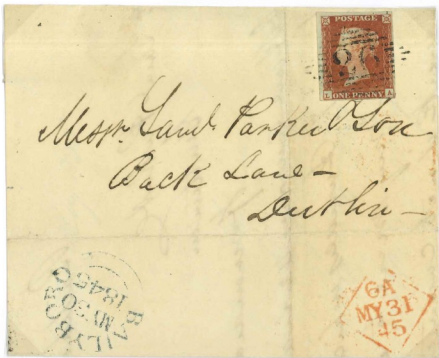 POSTAGE
26
L ONE PENNY A
Messrs. Saml. Parker & Son
Back Lane –
Dublin –
BAILYBORO
MY 30
1845
6A
MY 31
45